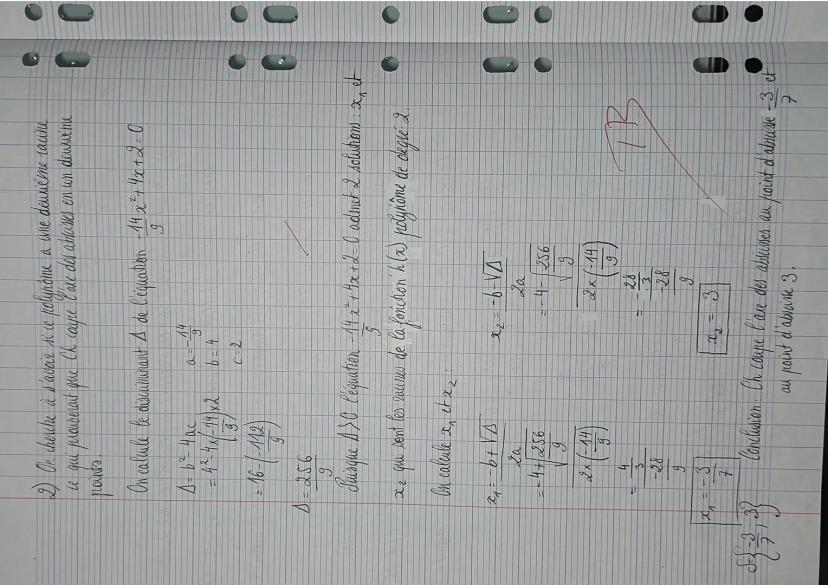 2) On cherche à s'avoir si ce polynôme a une deuxième racine
ce qui prouverait que Ch coupe l'axe des abscisses en un deuxième
point.
On calcule le discriminant Δ de l'équation -14/9 x² + 4x + 2 = 0
Δ = b² - 4ac
a = -14/9
= 4² - 4 x (-14/9) x 2
b = 4
= 16 - (-112/9)
c = 2
Δ = 256/9
Puisque Δ > 0 l'équation -14/9 x² + 4x + 2 = 0 admet 2 solutions : x₁ et
x₂ qui sont les racines de la fonction h(x) polynôme de degré 2.
On calcule x₁ et x₂ :
x₁ = (-b + √Δ)/2a
= (-4 + √(256/9))/(2 x (-14/9))
= (4/3)/(-28/9)
x₁ = -3/7
x₂ = (-b - √Δ)/2a
= (-4 - √(256/9))/(2 x (-14/9))
= (-28/3)/(-28/9)
x₂ = 3
TB
S = {-3/7 ; 3}
Conclusion : Ch coupe l'axe des abscisses au point d'abscisse -3/7 et
au point d'abscisse 3.